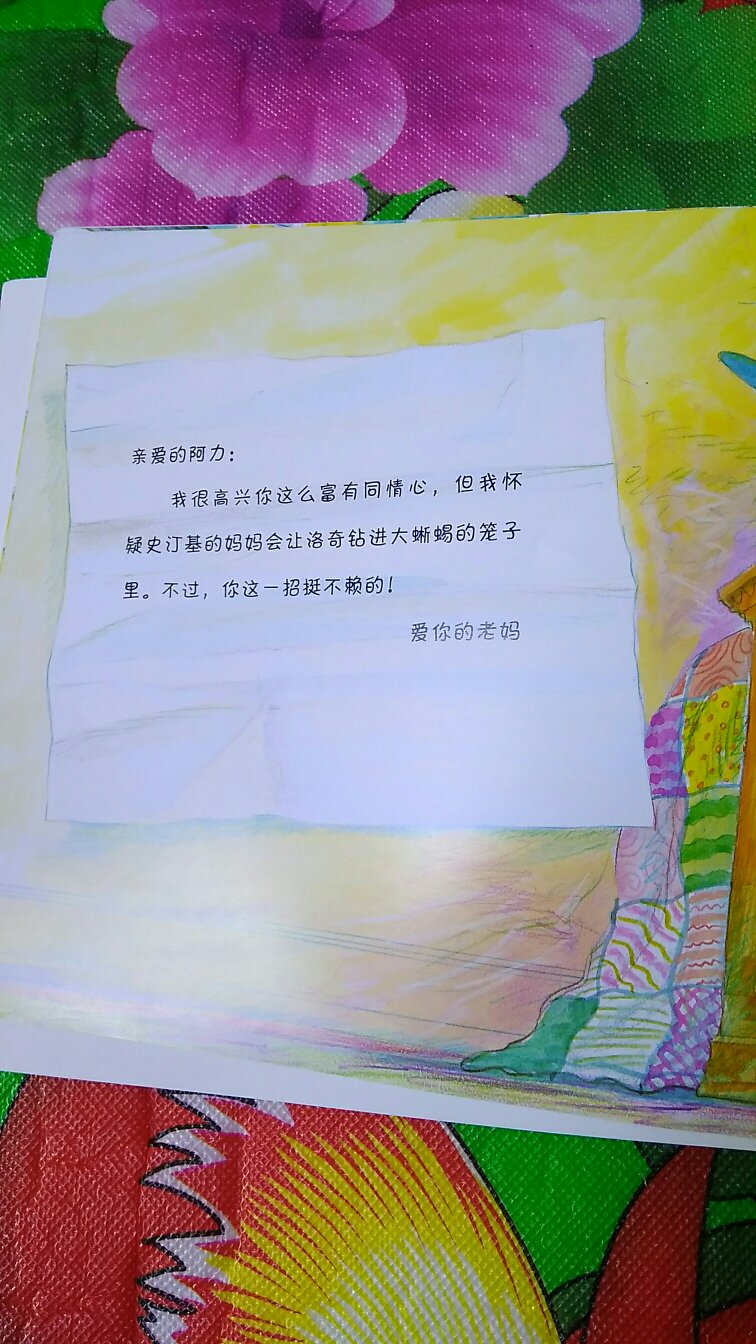 亲爱的阿力：
我很高兴你这么富有同情心，但我怀
疑史汀基的妈妈会让洛奇钻进大蜥蜴的笼子
里。不过，你这一招挺不赖的！
爱你的老妈